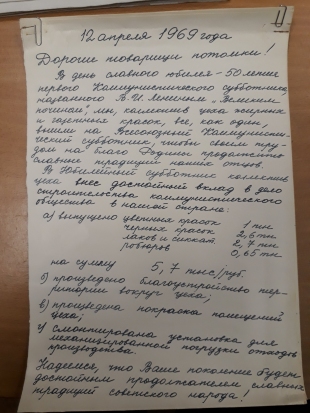 12 апреля 1969 года
Дорогие товарищи потомки!
В день славного юбилея - 50 летия
первого Коммунистического субботника,
названного В.И. Лениным „Великим
почином", мы, коллектив цеха
и красок, все, как один,
вышли на Всесоюзный Коммунисти-
ческий субботник, чтобы своим тру-
дом на благо Родины продолжить
славные традиции наших отцов.
В Юбилейный субботник коллектив
цеха внес достойный вклад в дело
строительства коммунистического
общества в нашей стране:
а) выпущено цветных красок 1 тн
черных красок 2,6 тн
лаков и сиккат. 2,7 тн
0,65 тн
на сумму 5,7 тыс/руб.
б) произведено благоустройство тер-
ритории вокруг цеха;
в) произведена покраска помещений
цеха;
г) смонтирована установка для
механизированной погрузки отходов
производства.
Надеемся, что Ваше поколение будет
достойным продолжателем славных
традиций советского народа!